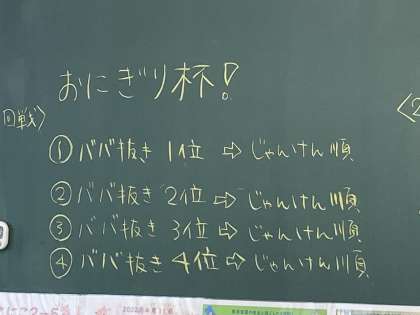 おにぎり杯!
回戦〉
① ババ抜き 1位 ⇨ じゃんけん順
② ババ抜き 2位 ⇨ じゃんけん順
③ ババ抜き 3位 ⇨ じゃんけん順
④ ババ抜き 4位 ⇨ じゃんけん順
〈2